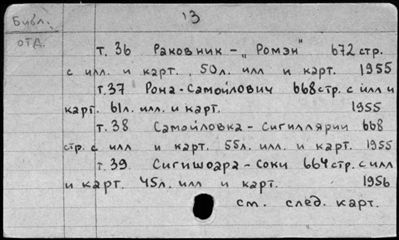 Библ.
отд.
13
т. 36 Раковник - „Ромэн" 672 стр.
с илл. и карт., 50л. илл и карт. 1955
т.37 Рона-Самойлович 668 стр. с илл и
карт. 61л. илл. и карт. 1955
т. 38 Самойловка - Сигиллярии 668
стр. с илл и карт. 55л. илл. и карт. 1955
т. 39 Сигишоара - Соки 664 стр. с илл
и карт. 45л. илл и карт. 1956
см. след. карт.